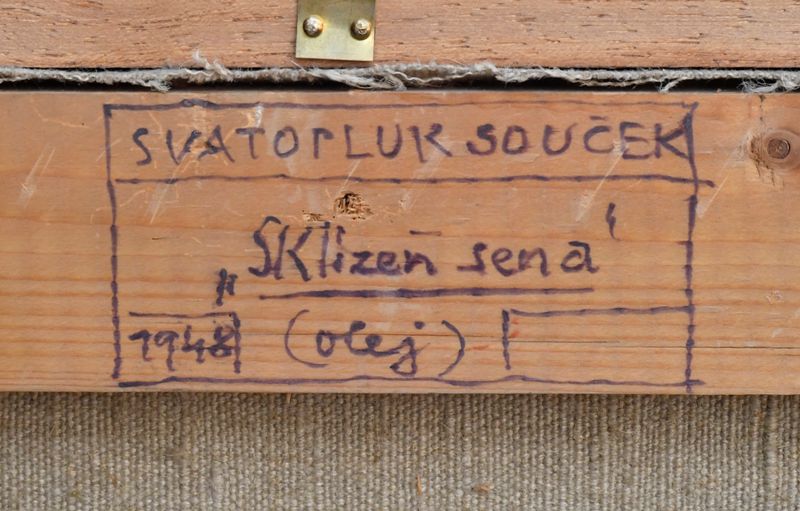 SVATOPLUK SOUČEK
„Sklizeň sena“
1948 (olej)